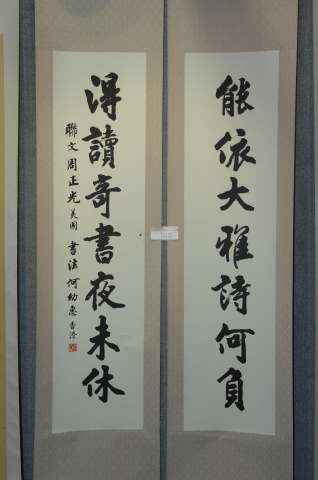 能依大雅詩何負
得讀奇書夜未休
聯文周正光美國 書法何幼惠香港